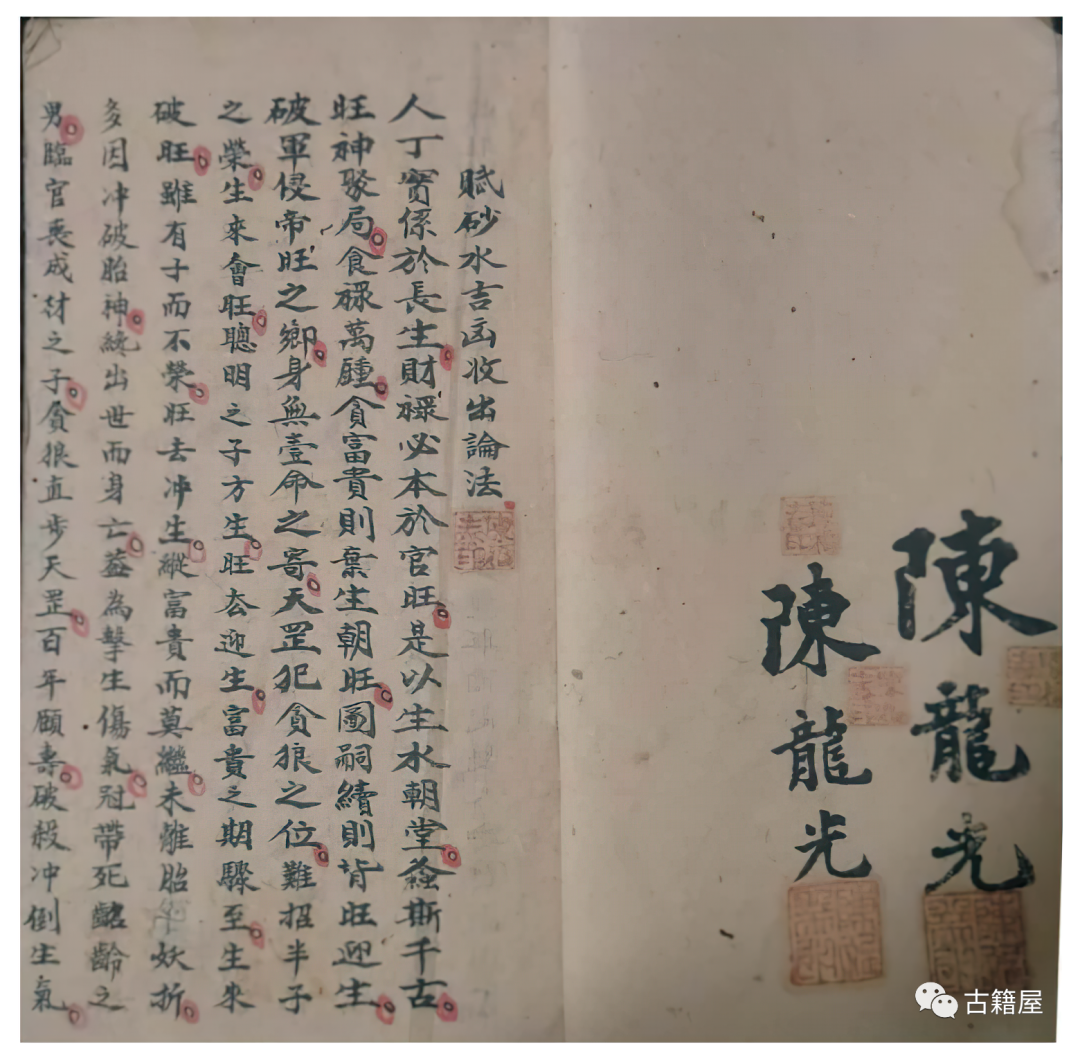 陳龍光
陳龍光
賦砂水吉凶收出論法
人丁實係於長生財祿必本於官旺是以生水朝堂螽斯千古
旺神聚局食祿萬鍾貪富貴則棄生朝旺圖嗣續則背旺迎生
破軍侵帝旺之鄉身無壹命之寄天罡犯貪狼之位難招半子
之榮生來會旺聰明之子方生旺去迎生富貴之期驟至生來
破旺雖有子而不榮旺去冲生縱富貴而莫繼未離胎妖折
多因冲破胎神纔出世而身亡蓋為擊生傷氣冠帶死齠齡之
男臨官喪成材之子貪狼直步天罡百年頤壽破殺冲倒生氣
古籍屋